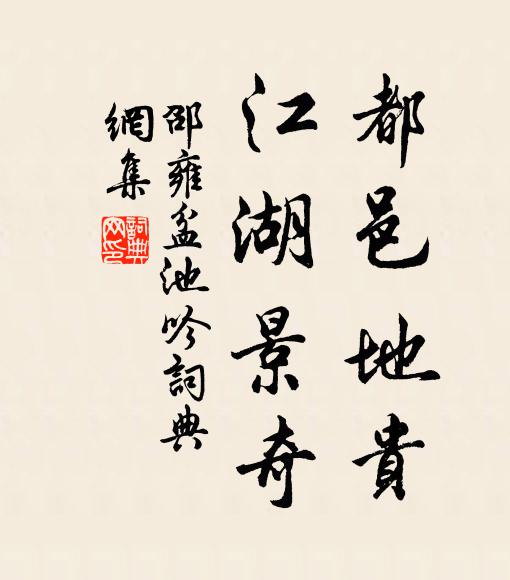 都邑地貴
江湖景奇
邵雍盆池吟詞典
網集
詞典
网印